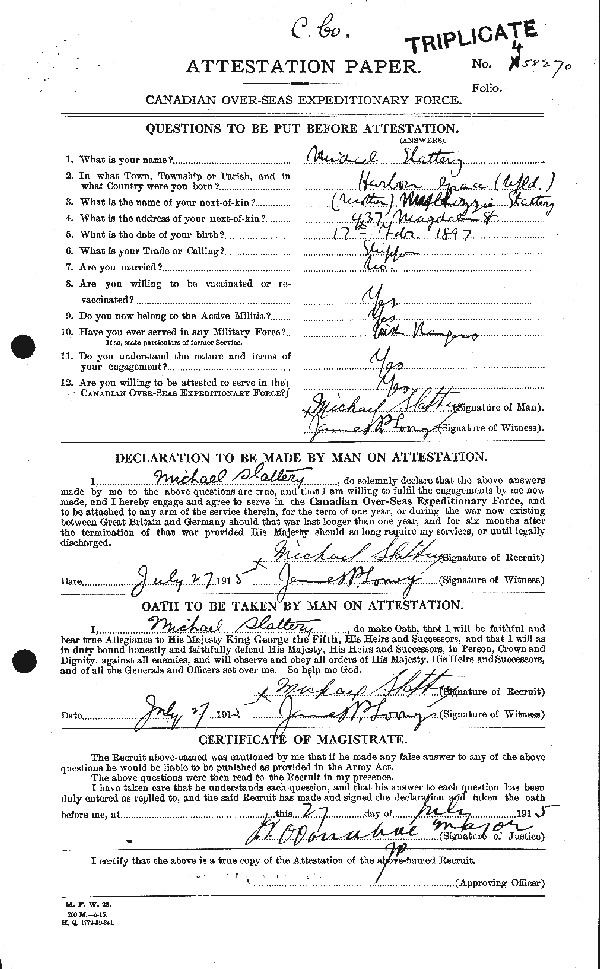 C. Co.
TRIPLICATE
ATTESTATION PAPER.
No. 458270
Folio.
CANADIAN OVER-SEAS EXPEDITIONARY FORCE.
QUESTIONS TO BE PUT BEFORE ATTESTATION.
(ANSWERS).
1. What is your name? Michael Slattery
2. In what Town, Township or Parish, and in
what Country were you born? Harbor Grace (Nfld.)
3. What is the name of your next-of-kin? (Mother) Slattery
4. What is the address of your next-of-kin? 437 Magdalen St
5. What is the date of your birth? 17th Feb. 1897
6. What is your Trade or Calling? Shipper
7. Are you married? No.
8. Are you willing to be vaccinated or re-
vaccinated? Yes
9. Do you now belong to the Active Militia? Yes
10. Have you ever served in any Military Force? Irish Rangers
If so, state particulars of former Service.
11. Do you understand the nature and terms of
your engagement? Yes
12. Are you willing to be attested to serve in the
CANADIAN OVER-SEAS EXPEDITIONARY FORCE? Yes
x Michael Slattery (Signature of Man).
James P. (Signature of Witness).
DECLARATION TO BE MADE BY MAN ON ATTESTATION.
I, Michael Slattery, do solemnly declare that the above answers
made by me to the above questions are true, and that I am willing to fulfil the engagements by me now
made, and I hereby engage and agree to serve in the Canadian Over-Seas Expeditionary Force, and
to be attached to any arm of the service therein, for the term of one year, or during the war now existing
between Great Britain and Germany should that war last longer than one year, and for six months after
the termination of that war provided His Majesty should so long require my services, or until legally
discharged.
x Michael Slattery (Signature of Recruit)
Date July 27 1915 James P. (Signature of Witness)
OATH TO BE TAKEN BY MAN ON ATTESTATION.
I, Michael Slattery, do make Oath, that I will be faithful and
bear true Allegiance to His Majesty King George the Fifth, His Heirs and Successors, and that I will as
in duty bound honestly and faithfully defend His Majesty, His Heirs and Successors, in Person, Crown and
Dignity, against all enemies, and will observe and obey all orders of His Majesty, His Heirs and Successors,
and of all the Generals and Officers set over me. So help me God.
x Michael Slattery (Signature of Recruit)
Date July 27 191 James P. (Signature of Witness)
CERTIFICATE OF MAGISTRATE.
The Recruit above-named was cautioned by me that if he made any false answer to any of the above
questions he would be liable to be punished as provided in the Army Act.
The above questions were then read to the Recruit in my presence.
I have taken care that he understands each question, and that his answer to each question has been
duly entered as replied to, and the said Recruit has made and signed the declaration and taken the oath
before me, at this 27 day of July 1915
O'Donahoe Major (Signature of Justice)
I certify that the above is a true copy of the Attestation of the above-named Recruit.
(Approving Officer)
M. F. W. 23.
200 M.—4-15.
H. Q. 1772-39-841.